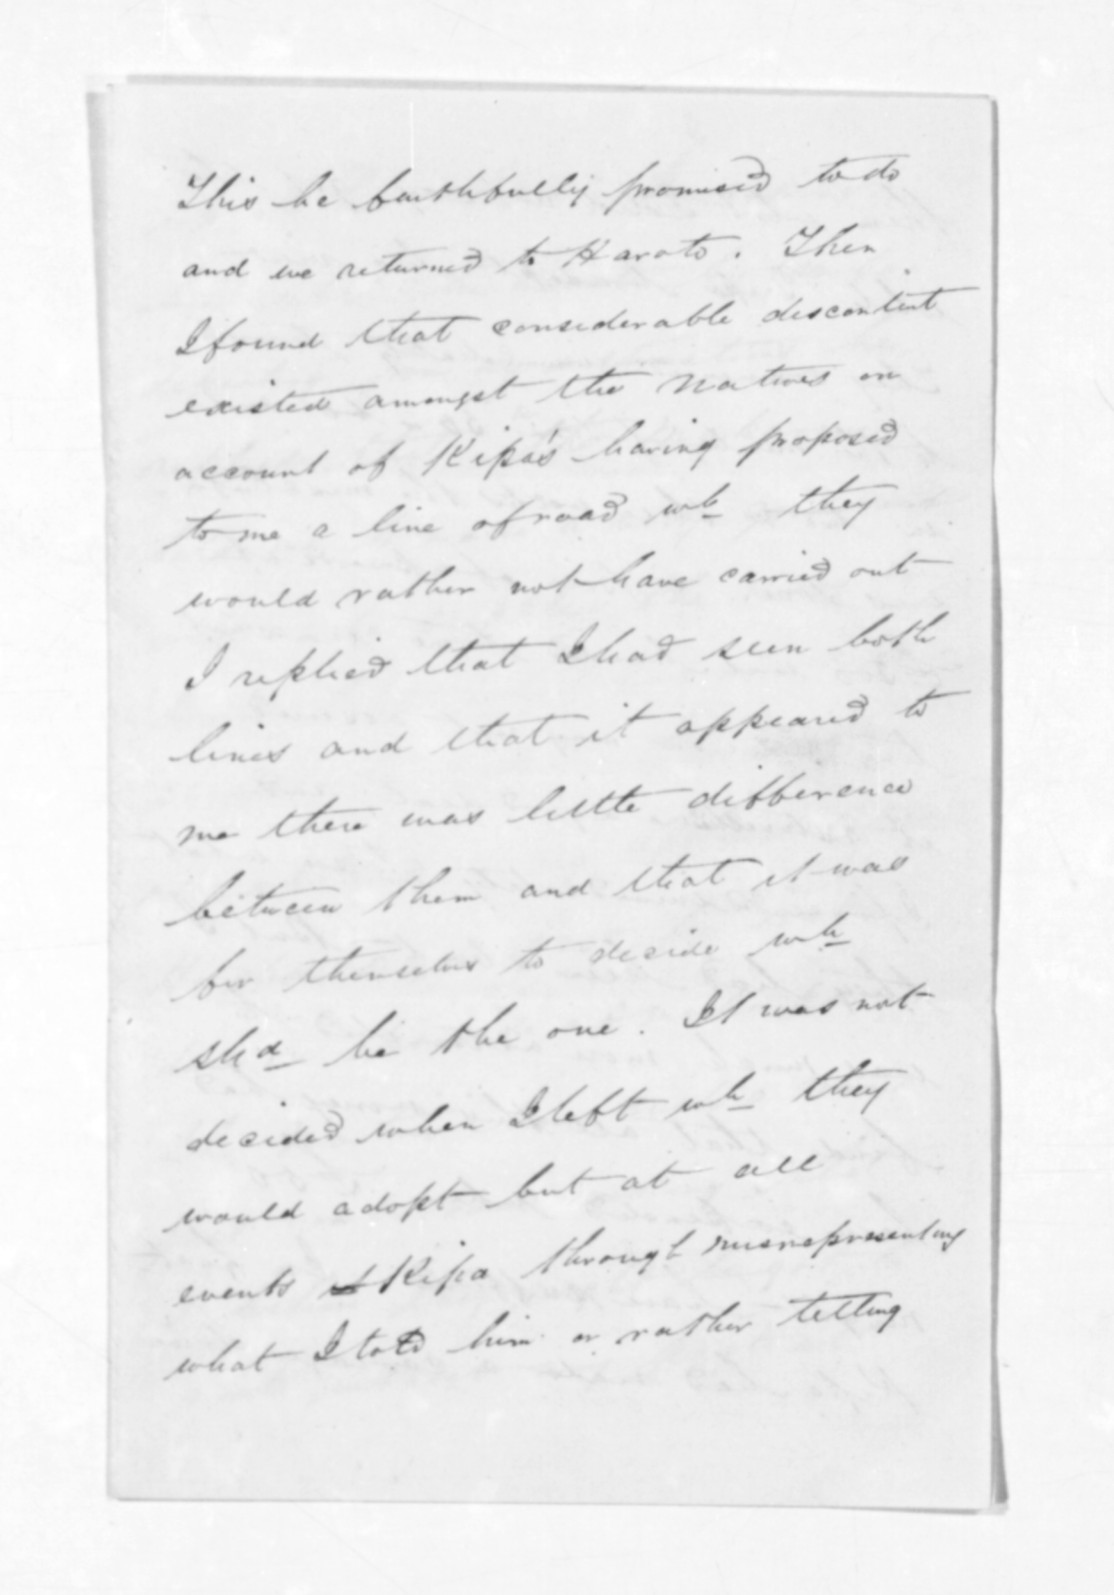 This he faithfully promised to do
and we returned to Harato. Then
I found that considerable discontent
existed amongst the Natives on
account of Kipa's having proposed
to me a line of road wh they
would rather not have carried out
I replied that I had seen both
lines and that it appeared to
me there was little difference
between them and that it was
for themselves to decide wh
shd be the one. It was not
decided when I left wh they
would adopt but at all
events Kipa through misrepresenting
what I told him or rather telling